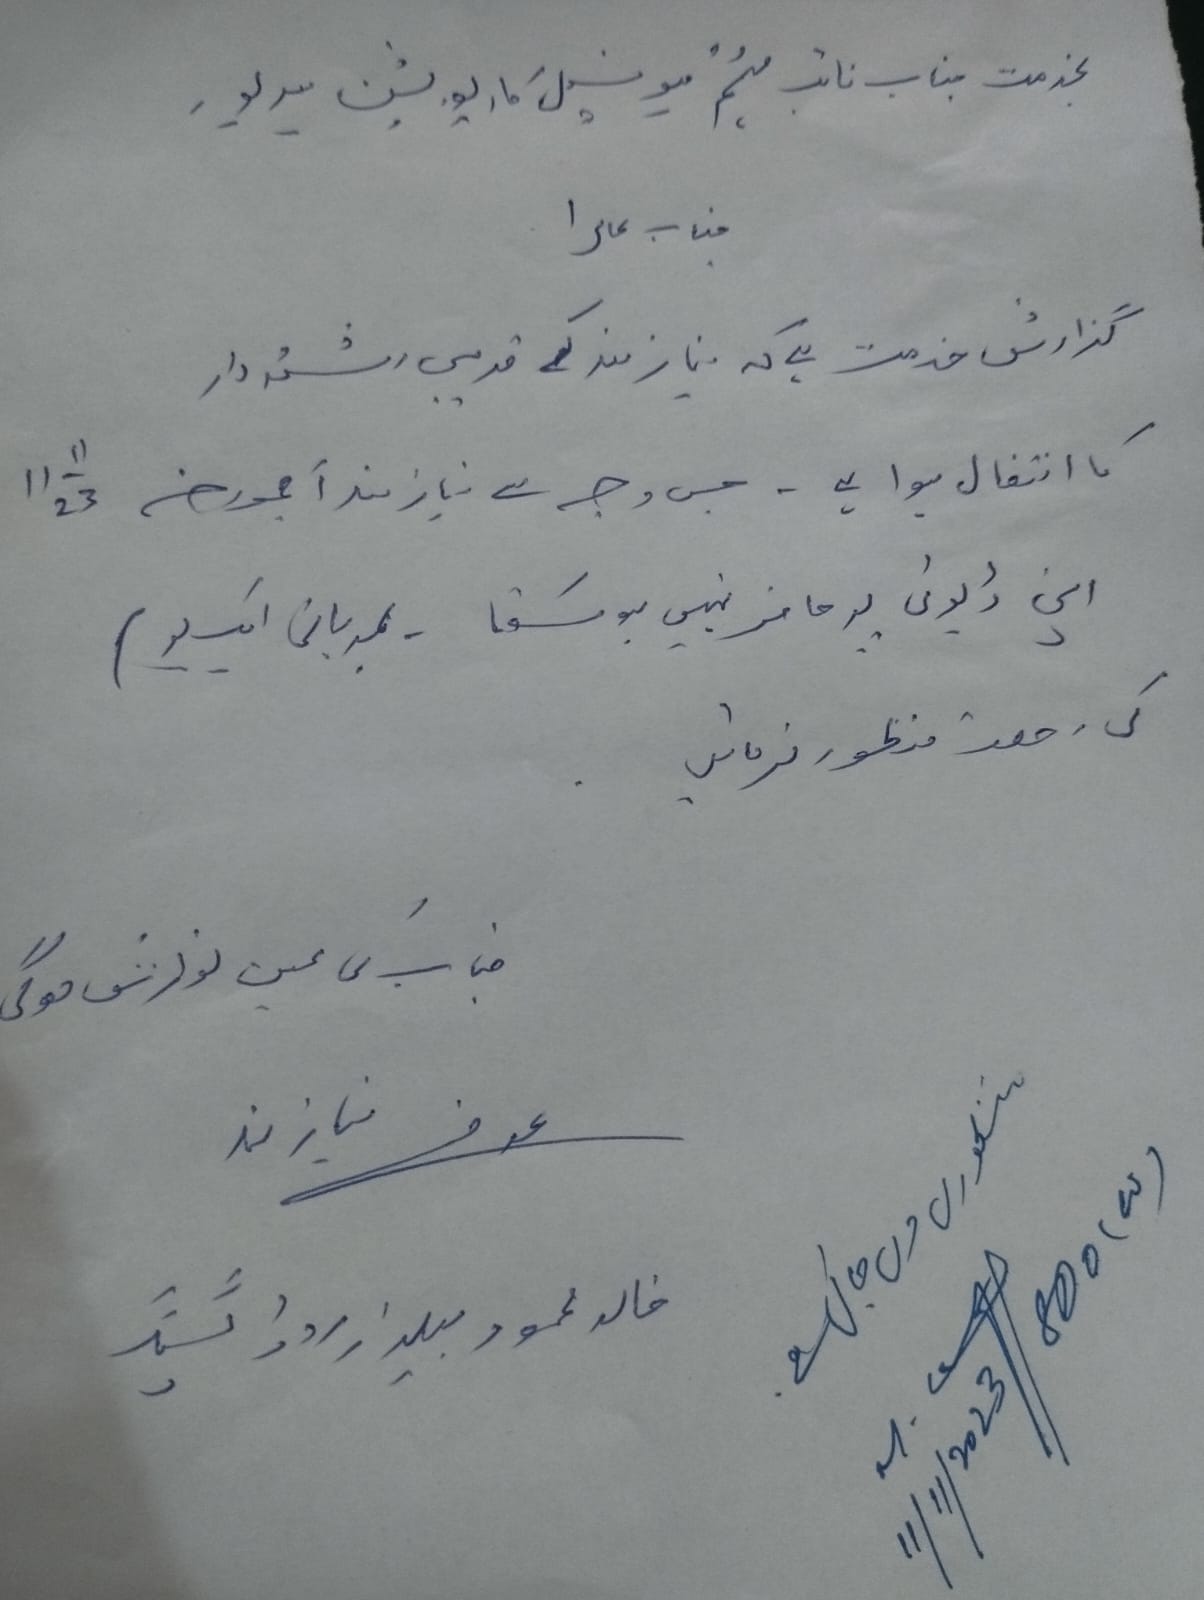 بخدمت جناب نائب مہتمم میونسپل کارپوریشن میرپور
جناب عالی!
گزارش خدمت ہے کہ نیاز مند کے قریبی رشتہ دار
کا انتقال ہوا ہے ۔ جس وجہ سے نیاز مند آج مورخہ 11/11/23
اپنی ڈیوٹی پر حاضر نہیں ہو سکتا ۔ مہربانی ایک یوم
کی رخصت منظور فرمائیں
جناب کی عین نوازش ہوگی
عرضے نیاز مند
خالد محمود بیلدار روڈ
منظوری دی جاتی ہے۔
11/11/2023